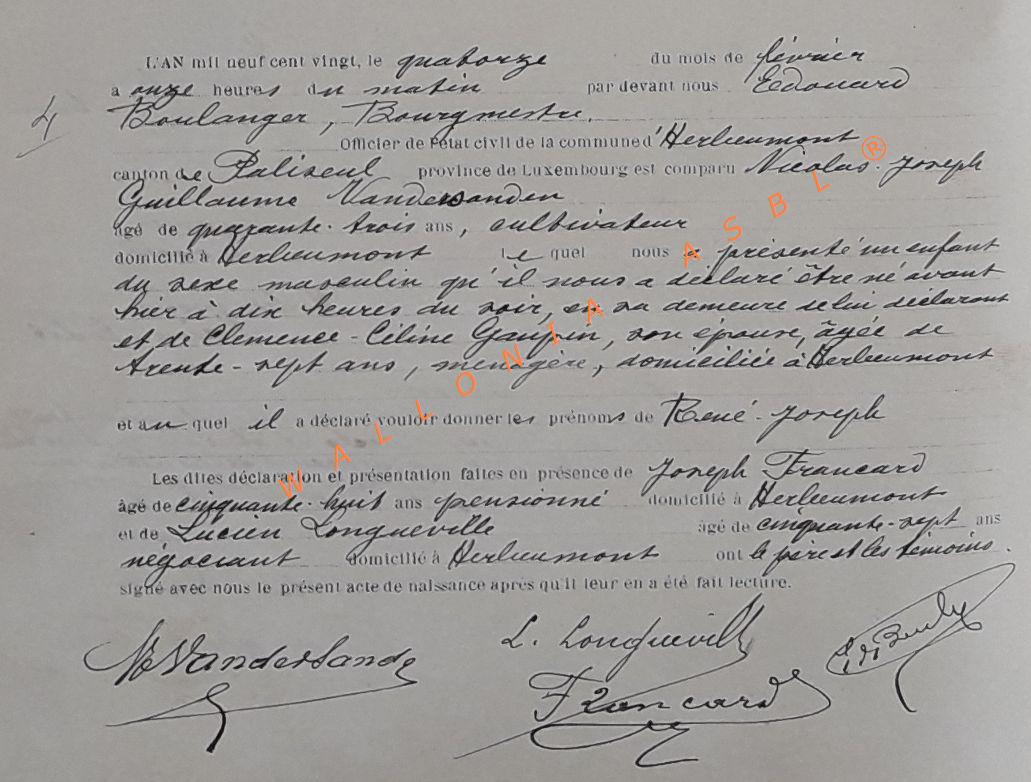 L'AN mil neuf cent vingt, le quatorze du mois de février
à onze heures du matin par devant nous Edouard
4
Boulanger, Bourgmestre.
Officier de l'état civil de la commune d'Herbeumont
canton de Paliseul province de Luxembourg est comparu Nicolas-Joseph
Guillaume Vandersanden
âgé de quarante-trois ans, cultivateur
domicilié à Herbeumont le quel nous a présenté un enfant
du sexe masculin qu'il nous a déclaré être né avant
hier à dix heures du soir, en sa demeure de lui déclarant
et de Clemence-Céline Gaupin, son épouse, âgée de
trente-sept ans, ménagère, domiciliée à Herbeumont
et au quel il a déclaré vouloir donner les prénoms de René-Joseph
Les dites déclaration et présentation faites en présence de Joseph Francard
âgé de cinquante-huit ans pensionné domicilié à Herbeumont
et de Lucien Longueville âgé de cinquante-sept ans
négociant domicilié à Herbeumont ont le père et les témoins.
signé avec nous le présent acte de naissance après qu'il leur en a été fait lecture.
L. Longueville
Vandersande
Francard
WALLONIA ASBL ®